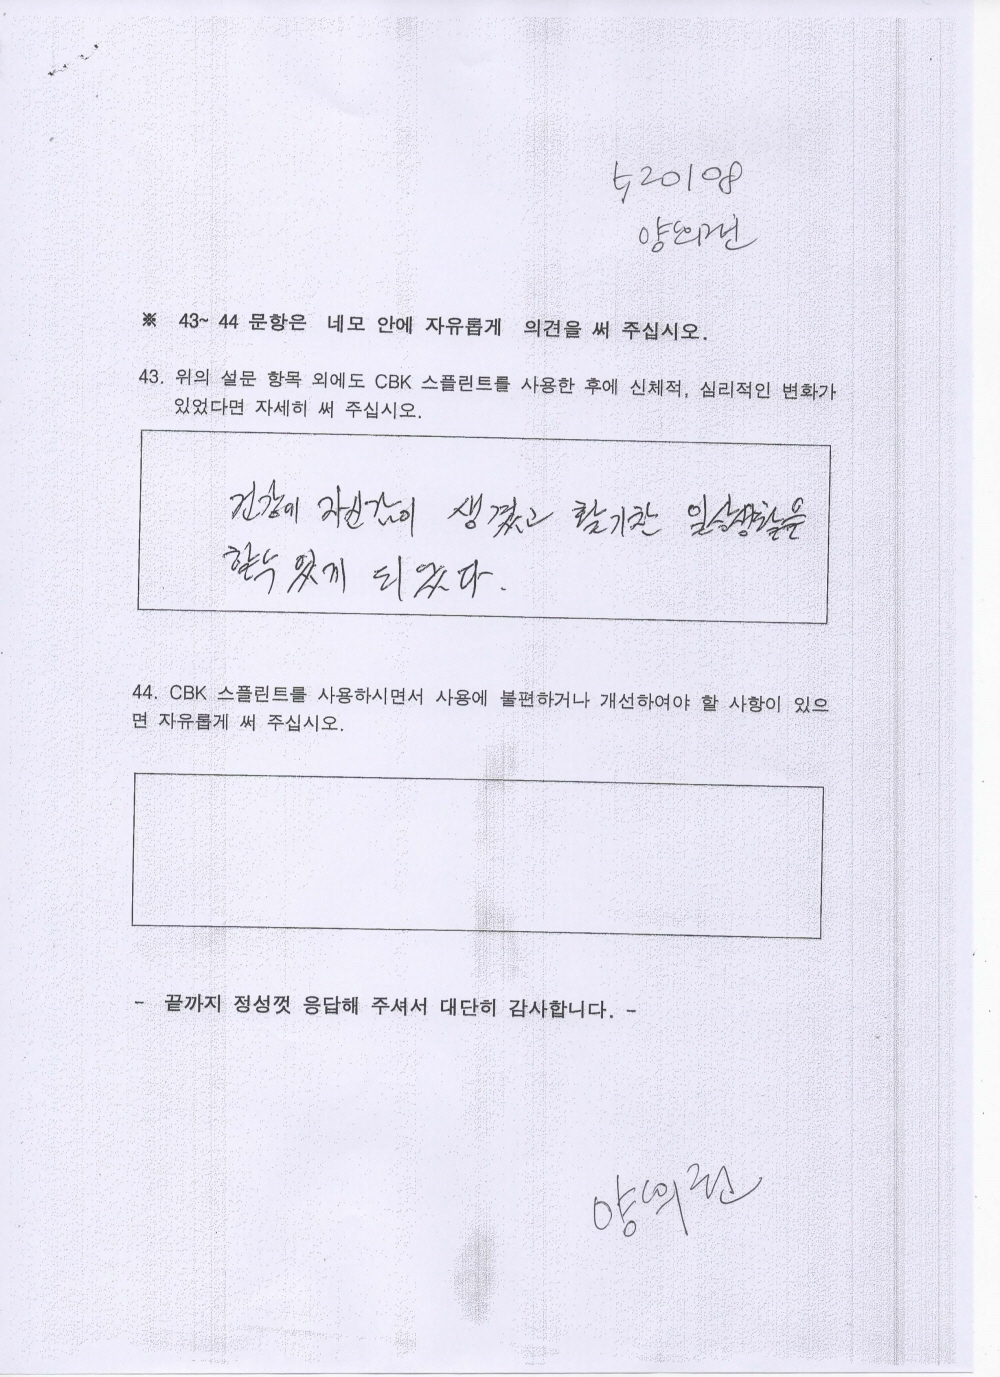 수20108
양의련
※ 43~ 44 문항은 네모 안에 자유롭게 의견을 써 주십시오.
43. 위의 설문 항목 외에도 CBK 스플린트를 사용한 후에 신체적, 심리적인 변화가
있었다면 자세히 써 주십시오.
건강에 자신감이 생겼고 활기찬 일상생활을
할수 있게 되었다.
44. CBK 스플린트를 사용하시면서 사용에 불편하거나 개선하여야 할 사항이 있으
면 자유롭게 써 주십시오.
- 끝까지 정성껏 응답해 주셔서 대단히 감사합니다. -
양의련